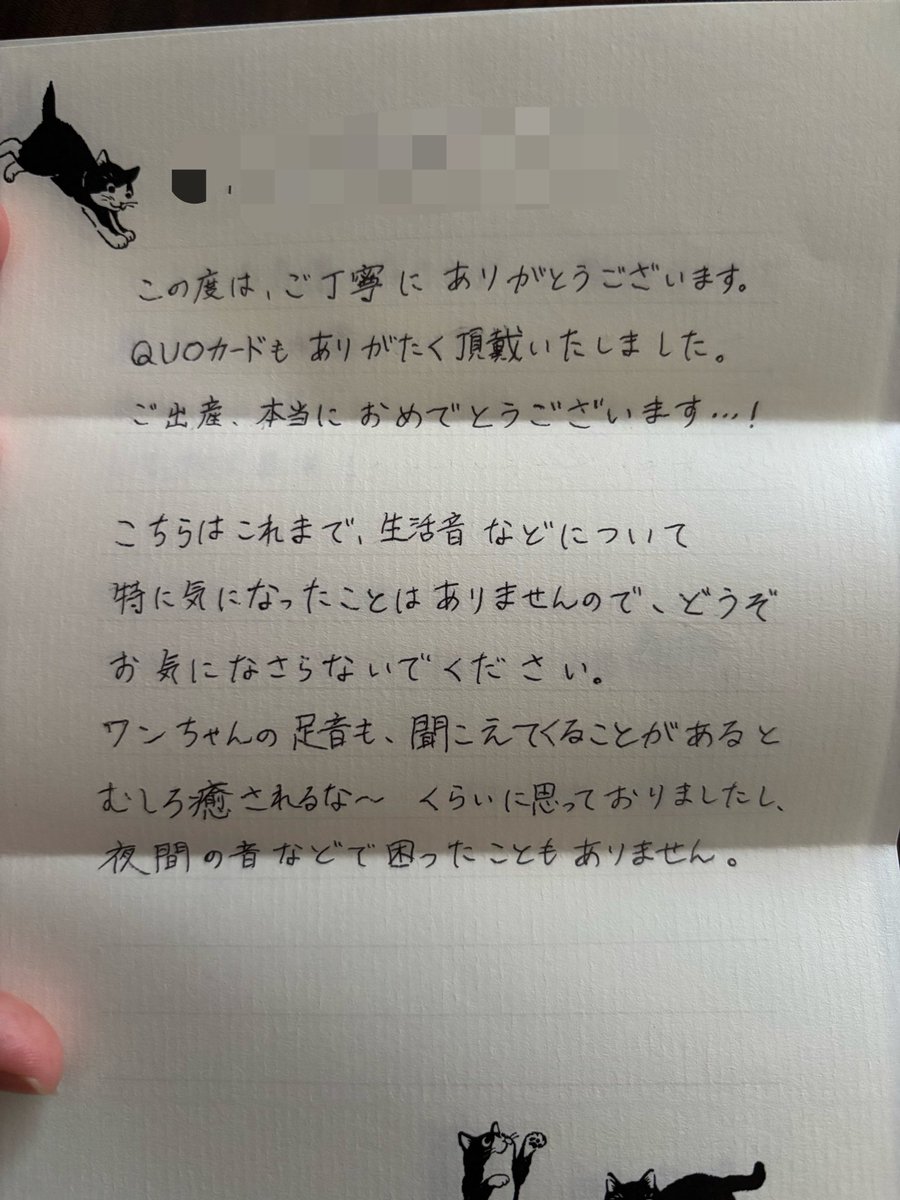 この度は、ご丁寧に ありがとうございます。
QUOカードも ありがたく頂戴いたしました。
ご出産、本当に おめでとうございます…!
こちらはこれまで、生活音 などについて
特に気になったことは ありませんので、どうぞ
お気になさらないでください。
ワンちゃんの足音も、聞こえてくることがあると
むしろ癒されるな〜 くらいに思っておりましたし、
夜間の音などで困ったこともありません。